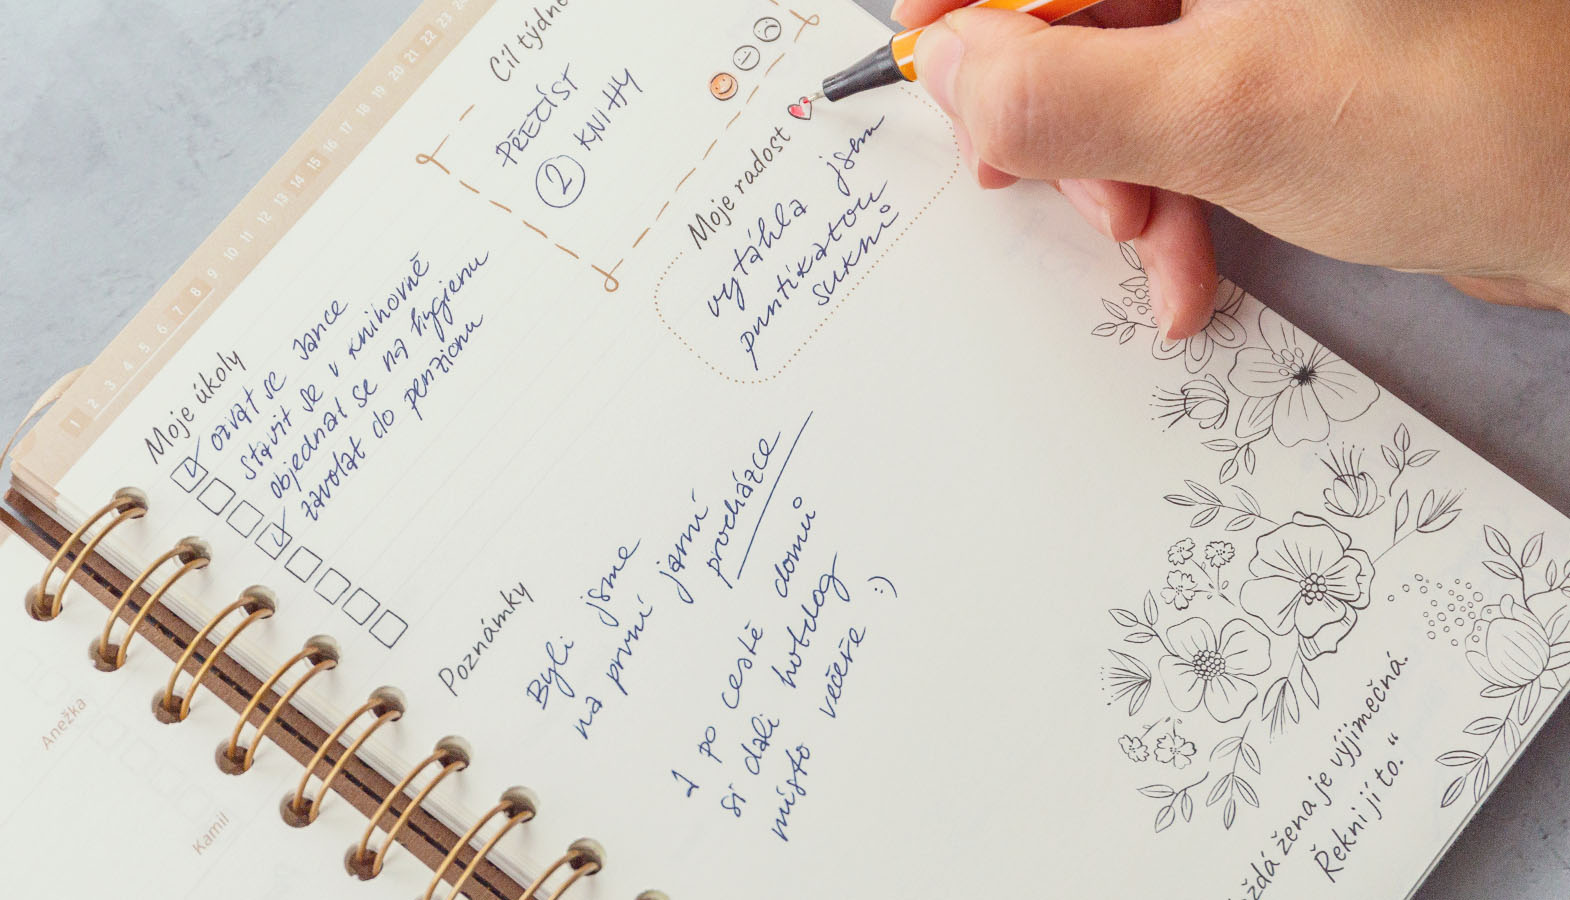 1 2 3 4 5 6 7 8 9 10 11 12 13 14 15 16 17 18 19 20 21 22 23
Cíl týdne
PŘEČÍST
2 KNIHY
Moje radost
vytáhla jsem
puntíkatou
sukni
Moje úkoly
ozvat se Jance
stavit se v knihovně
objednat se na hygienu
zavolat do penzionu
Poznámky
Byli jsme
na první jarní
procházce
A po cestě domů
si dali hotdog
místo večeře :)
Anežka
Kamil
žena je výjimečná.
Řekni jí to.“